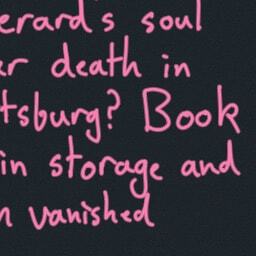 erard's soul
er death in
tsburg? Book
in storage and
n vanished